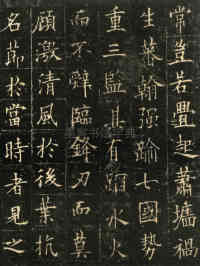 常豈若舋起蕭墻禍
生蕃翰强踰七國勢
重三監其有蹈水火
而不辭臨鋒刃而莫
顧激清風於後葉抗
名節於當時者見之